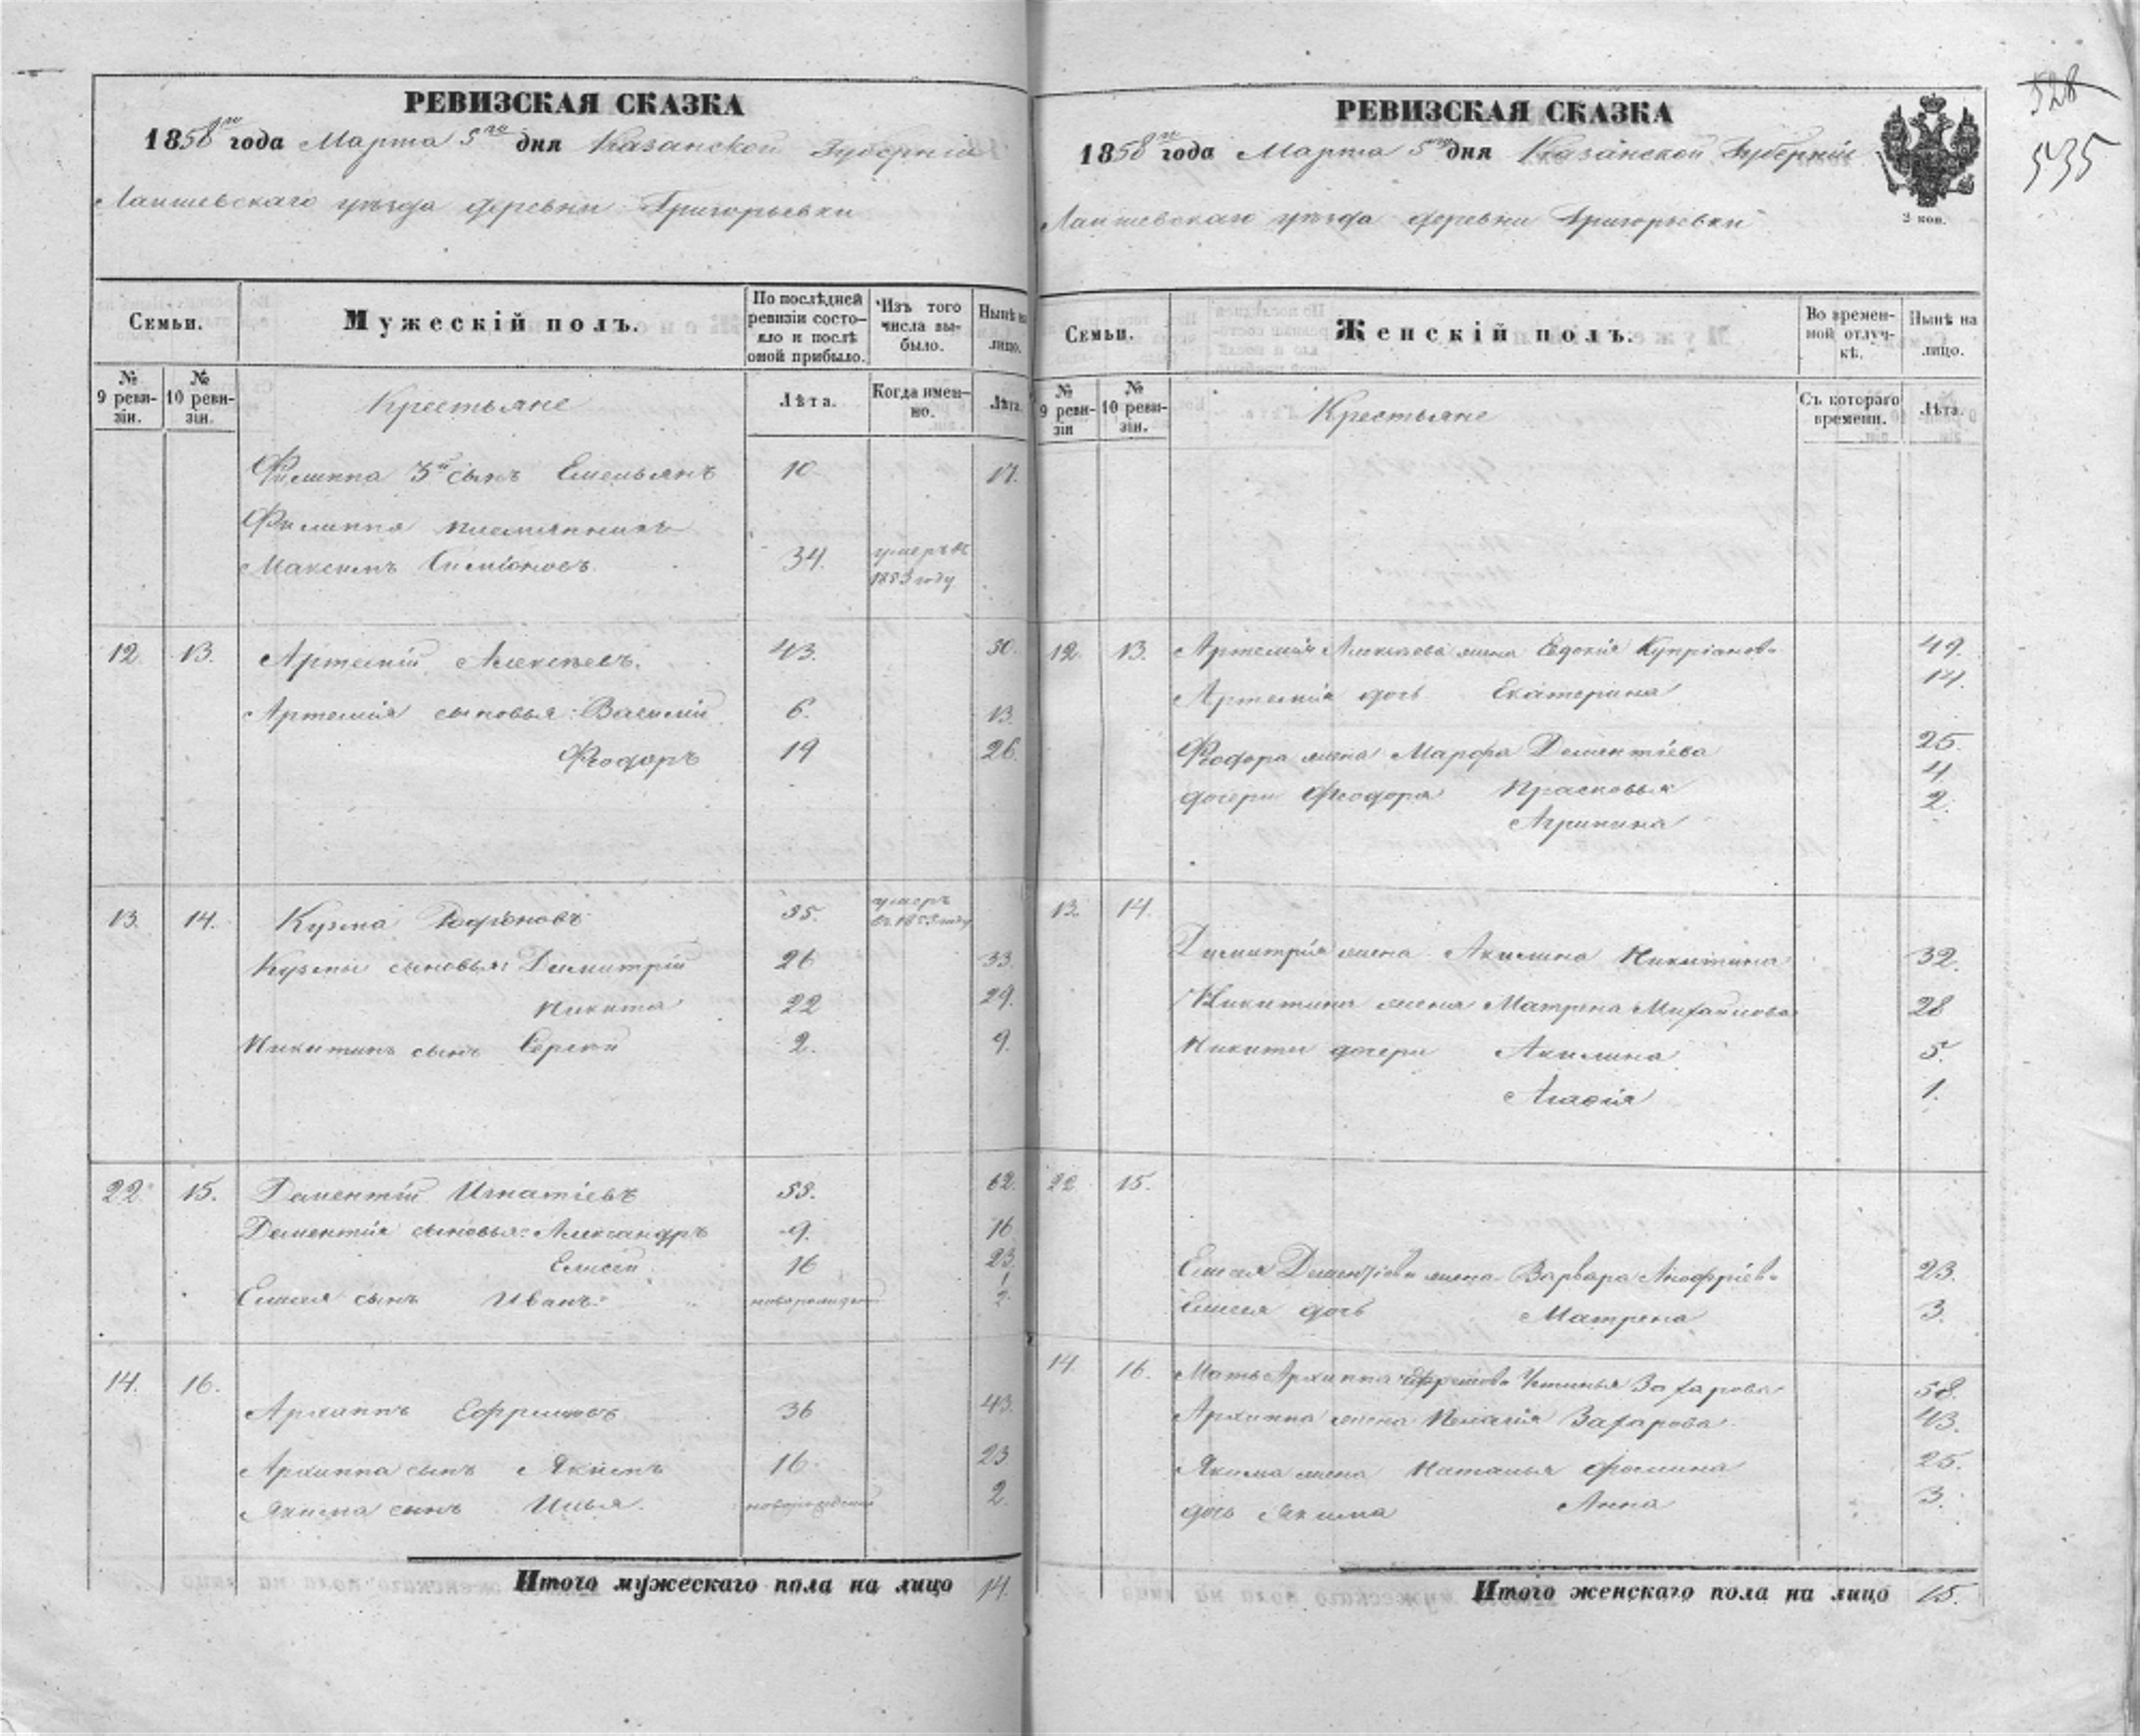 РЕВИЗСКАЯ СКАЗКА
1858го года Марта 5го дня Казанской Губерніи
Лаишевскаго уѣзда деревни Григорьевки
Семьи.
Мужескій полъ.
По послѣдней ревизіи состояло и послѣ оной прибыло.
Изъ того числа выбыло.
Нынѣ на лицо.
№ 9 ревизіи.
№ 10 ревизіи.
Крестьяне
Лѣта.
Когда именно.
Лѣта.
Филиппа 3й сынъ Емельянъ 10 17.
Филиппа племянникъ
Максимъ Симіоновъ 34. умеръ въ 1853 году
12. 13. Артемій Алексѣевъ. 43. 50.
Артемія сыновья: Василій 6. 13.
Феодоръ 19 26.
13. 14. Кузма 35. умеръ въ 1853 году
Кузмы сыновья: Димитрій 26 33.
Никита 22 29.
Никитинъ сынъ Сергѣй 2. 9.
22. 15. Дементій Игнатіевъ 55. 62.
Дементія сыновья: Александръ 9. 16
Елисей 16 23.
Елисея сынъ Иванъ новорожденный
14. 16.
Архиппъ Ефремовъ 36 43.
Архиппа сынъ Якимъ 16. 23
Якима сынъ Илья. новорожденный 2.
Итого мужескаго пола на лицо 14.
РЕВИЗСКАЯ СКАЗКА
1858го года Марта 5го дня Казанской Губерніи
Лаишевскаго уѣзда деревни Григорьевки
2 коп.
528
535
Семьи.
Женскій полъ.
Во временной отлучкѣ.
Нынѣ на лицо.
№ 9 ревизіи
№ 10 ревизіи.
Крестьяне
Съ котораго времени.
Лѣта.
12. 13. Артемія Алексѣева жена Евдокія Купріанова 49.
Артемія дочь Екатерина 14.
Феодора жена Марфа Дементіева 25.
дочери Феодора Прасковья 4.
Агрипина 2.
13. 14.
Димитрія жена Акилина Никитина 32.
Никитина жена Матрена Михайлова 28
Никиты дочери Акилина 5.
Агафія 1.
22 15.
Елисея Дементіева жена Варвара 23.
Елисея дочь Матрена 3.
14. 16. Мать Архиппа Ефремова Устинья Захарова 58.
Архиппа жена Пелагія Захарова. 43.
Якима жена Наталья Фомина 25.
дочь Якима Анна 3.
Итого женскаго пола на лицо 15.